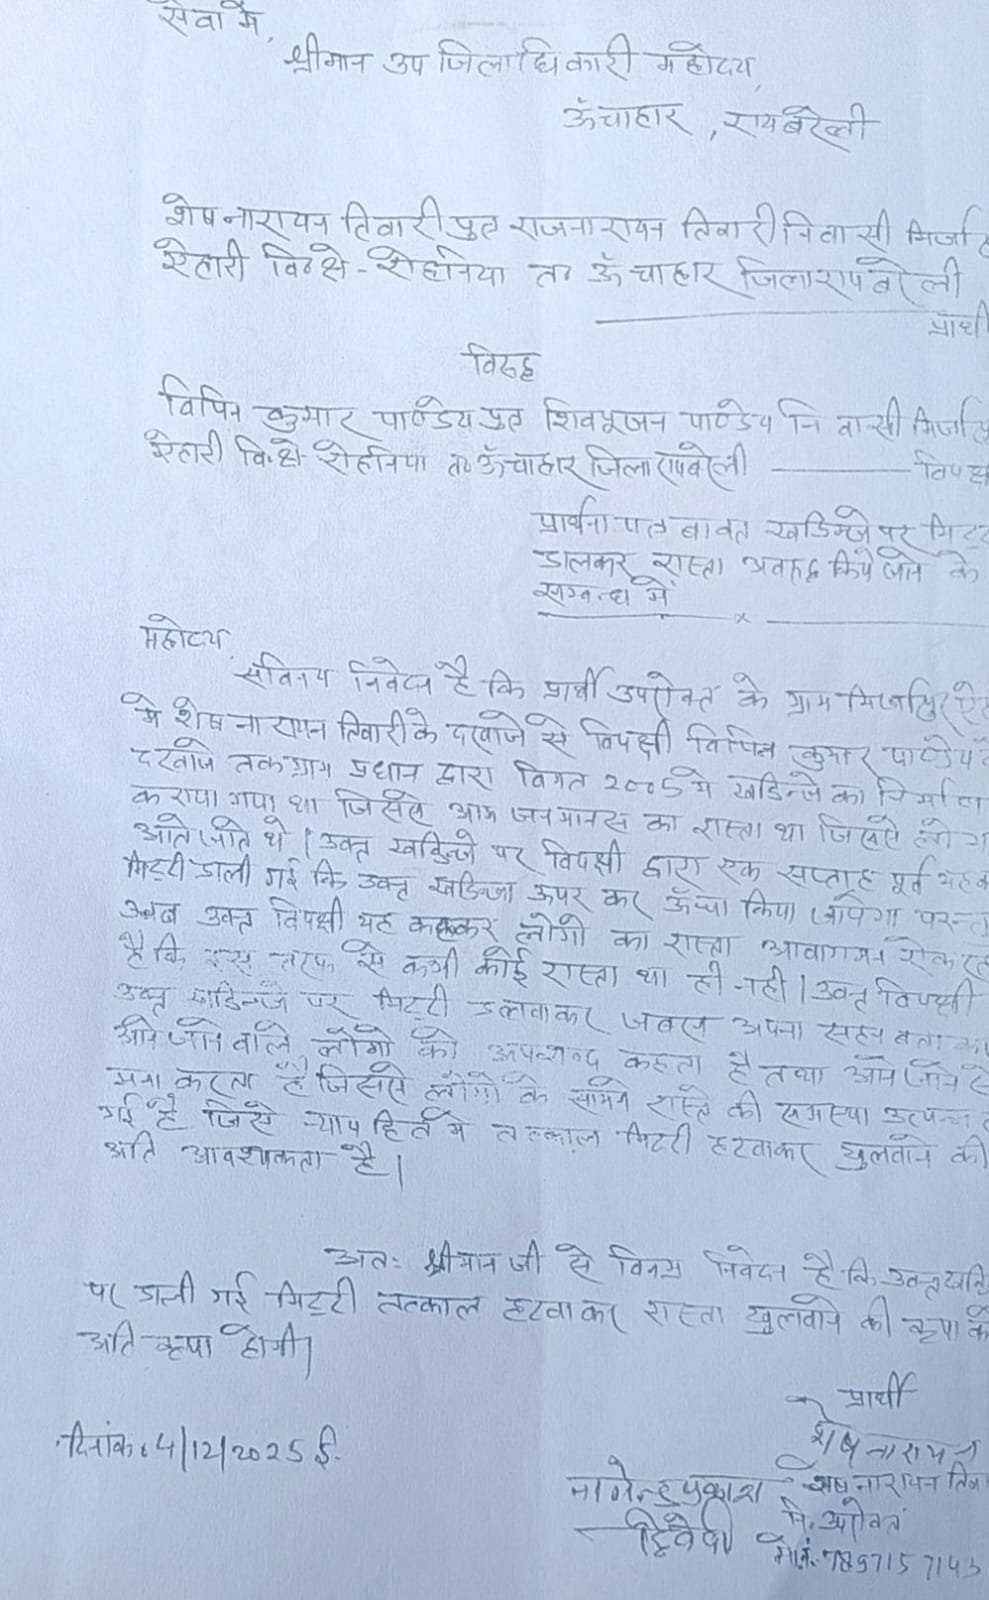 सेवा में,
श्रीमान उप जिलाधिकारी महोदय,
ऊँचाहार, रायबरेली
शेषनारायन तिवारी पुत्र राजनारायन तिवारी निवासी
ऐहारी वि० क्षे - रोहनिया त० ऊँचाहार जिला रायबरेली
प्रार्थी
विरुद्ध
विपिन कुमार पाण्डेय पुत्र शिवपूजन पाण्डेय निवासी
ऐहारी वि.क्षे. रोहनिया त० ऊँचाहार जिला रायबरेली
प्रार्थना पत्र बावत खडिन्जे पर
डालकर रास्ता अवरुद्ध किये जाने के
सम्बन्ध में
महोदय,
सविनय निवेदन है कि प्रार्थी उपरोक्त के ग्राम मिर्जापुर
में शेष नारायन तिवारी के दरवाजे से विपक्षी विपिन कुमार पाण्डेय
दरवाजे तक ग्राम प्रधान द्वारा विगत 2005 में खडिन्जे का निर्माण
कराया गया था जिससे आम जनमानस का रास्ता था जिससे लोग
आते जाते थे। उक्त खडिन्जे पर विपक्षी द्वारा एक सप्ताह पूर्व
मिट्टी डाली गई कि उक्त खडिन्जा ऊपर कर ऊँचा किया जायेगा
अब उक्त विपक्षी यह कहकर लोगो का रास्ता आवागमन
है कि इस तरफ से कभी कोई रास्ता था ही नही। उक्त विपक्षी
उक्त खडिन्जे पर मिट्टी डलवाकर जबरन अपना सहन
आने जाने वाले लोगो को अपशब्द कहता है तथा आने जाने से
मना करता है जिससे लोगो के सामने रास्ते की समस्या उत्पन्न
गई है जिसे न्याय हित में तत्काल मिट्टी हटवाकर खुलवाने की
अति आवश्यकता है।
अतः श्रीमान जी से विनम्र निवेदन है कि उक्त
पर डाली गई मिट्टी तत्काल हटवाकर रास्ता खुलवाने की कृपा
अति कृपा होगी।
प्रार्थी
शेष नारायन
दिनांक: 4/12/2025 ई.
नागेन्द्र प्रकाश शेष नारायन
द्विवेदी नि. उपरोक्त
मो.नं. 7897157143